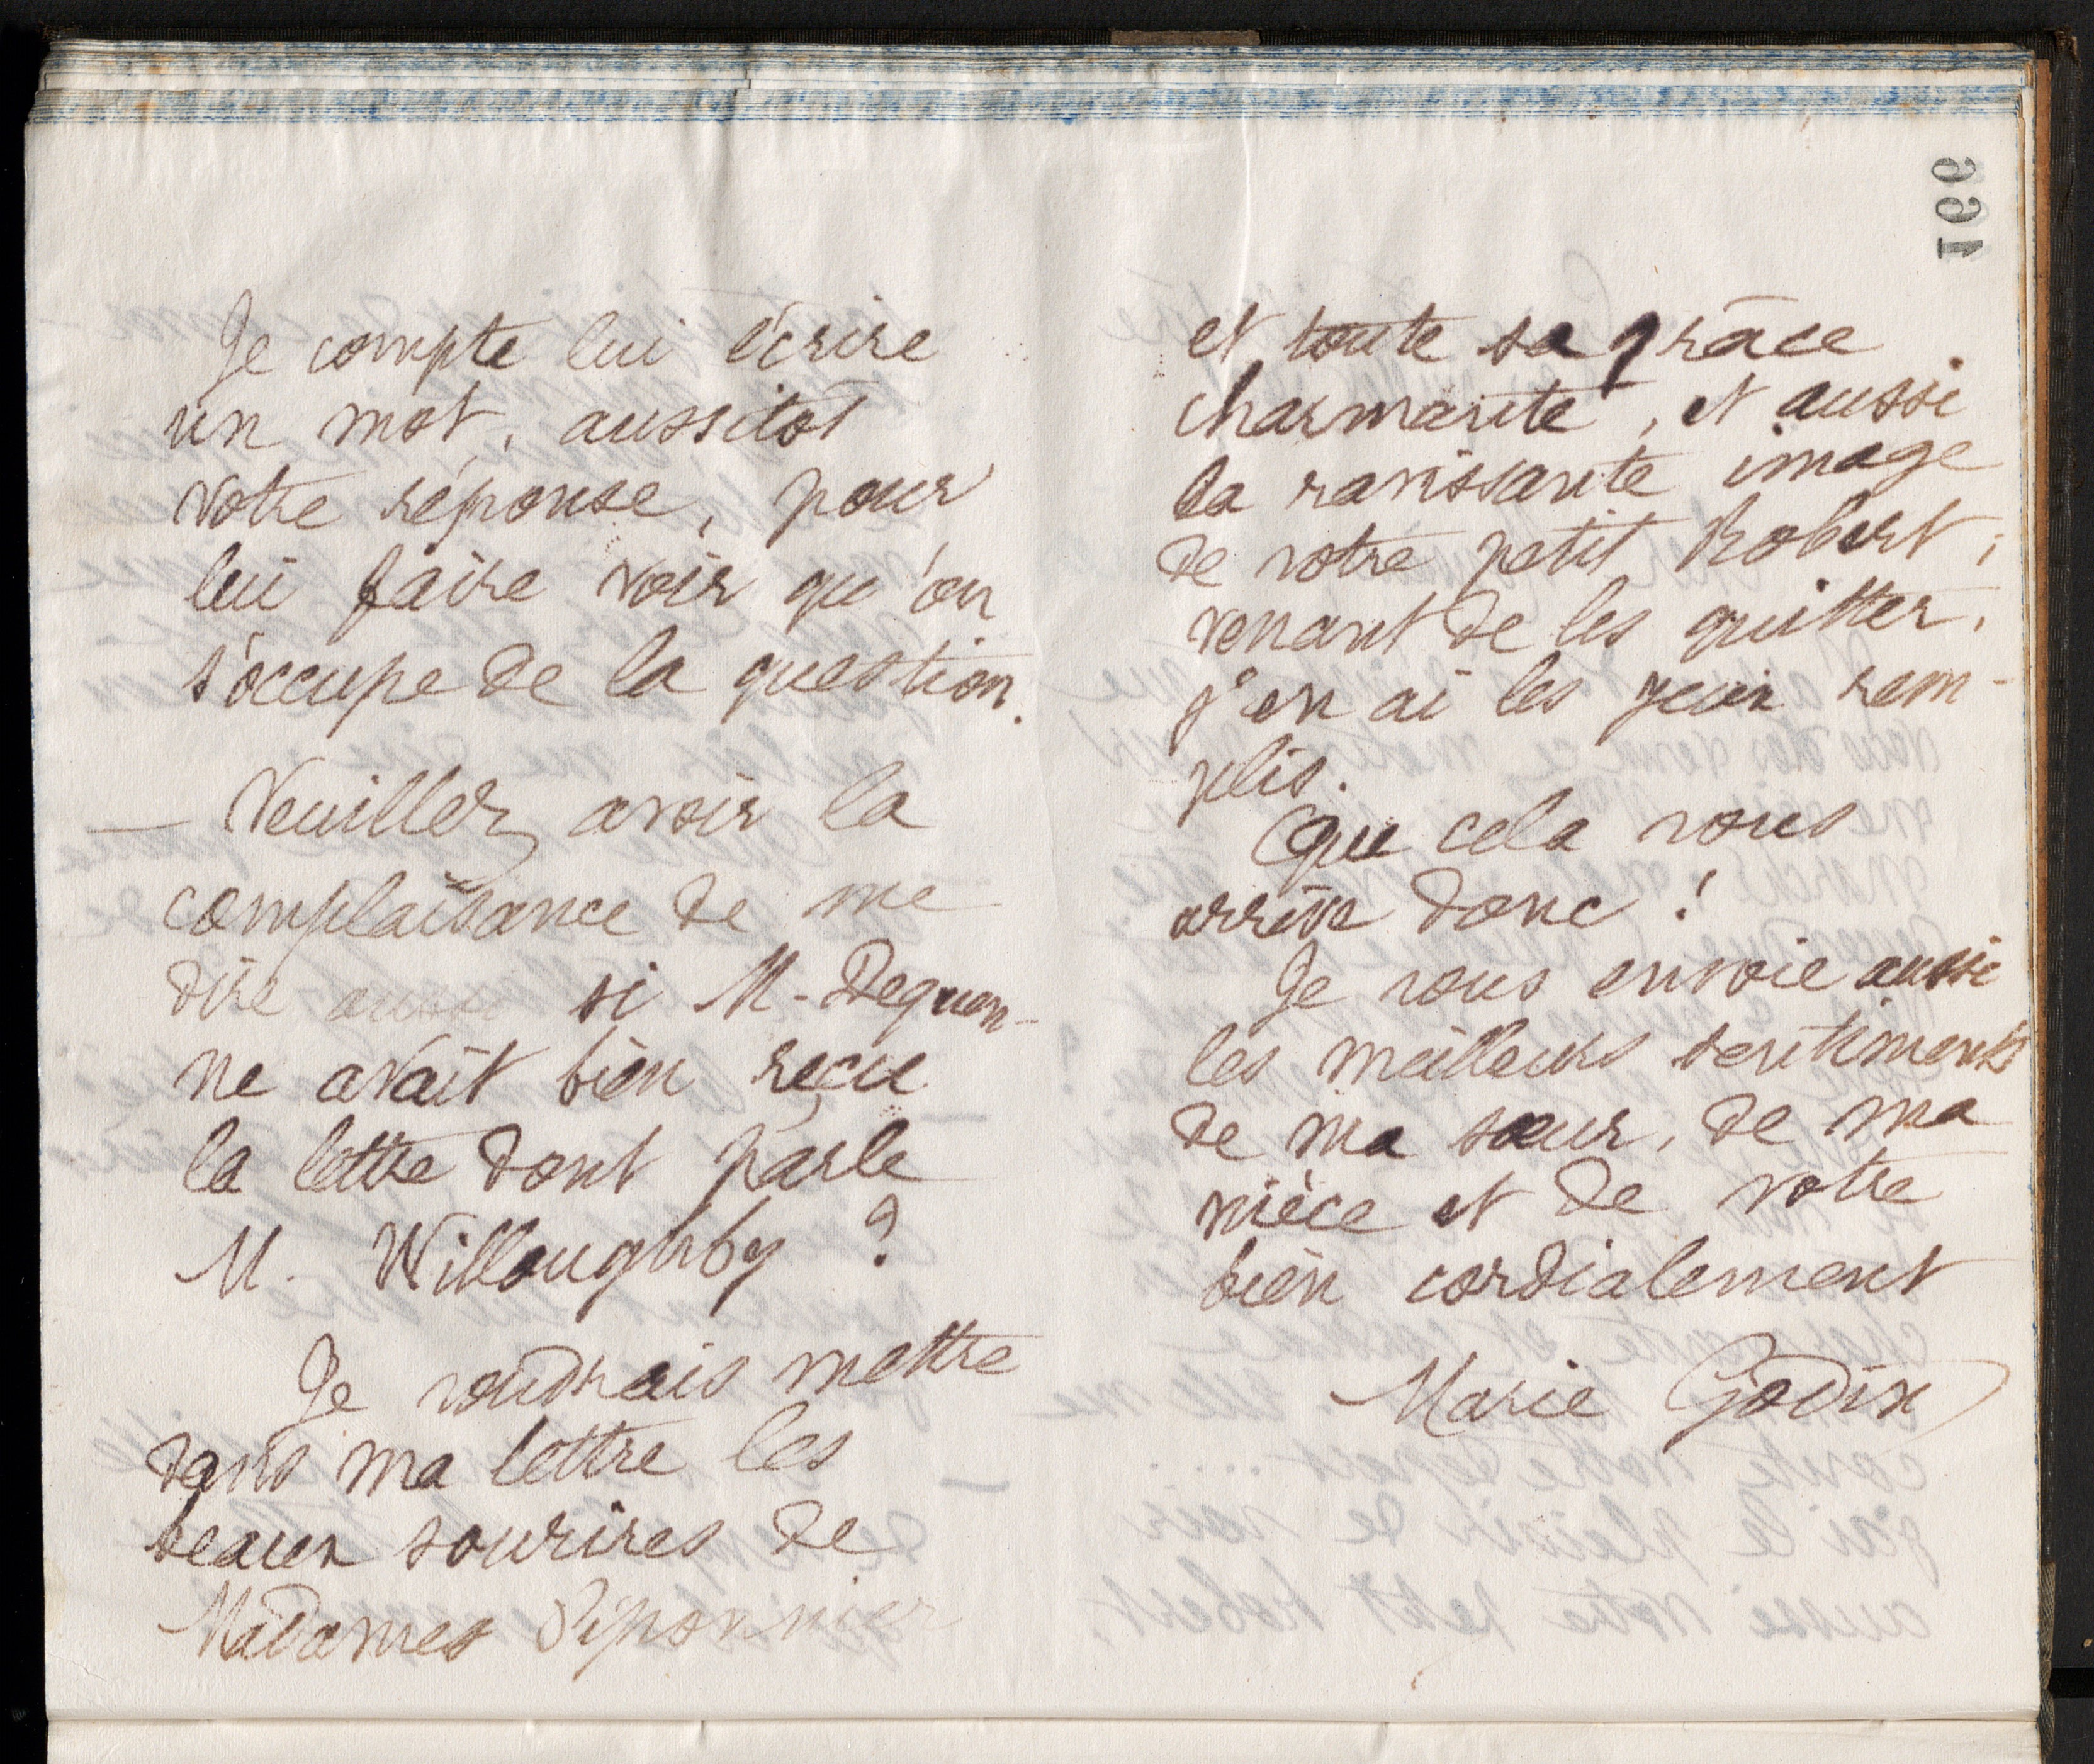 Je compte lui écrire
un mot, aussitôt
votre réponse, pour
lui faire voir qu'on
s'occupe de la question.
— Veuillez avoir la
complaisance de me
dire aussi si M. Dequen-
ne avait bien reçu
la lettre dont parle
M. Willoughby ?
Je voudrais mettre
dans ma lettre les
beaux sourires de
Madames Piponnier
199
et toute sa grâce
charmante, et aussi
la ravissante image
de votre petit Robert ;
venant de les quitter,
j'en ai les yeux rem-
plis.
Que cela vous
arrive donc !
Je vous envoie aussi
les meilleurs sentiments
de ma sœur, de ma
nièce et de votre
bien cordialement
Marie Godin